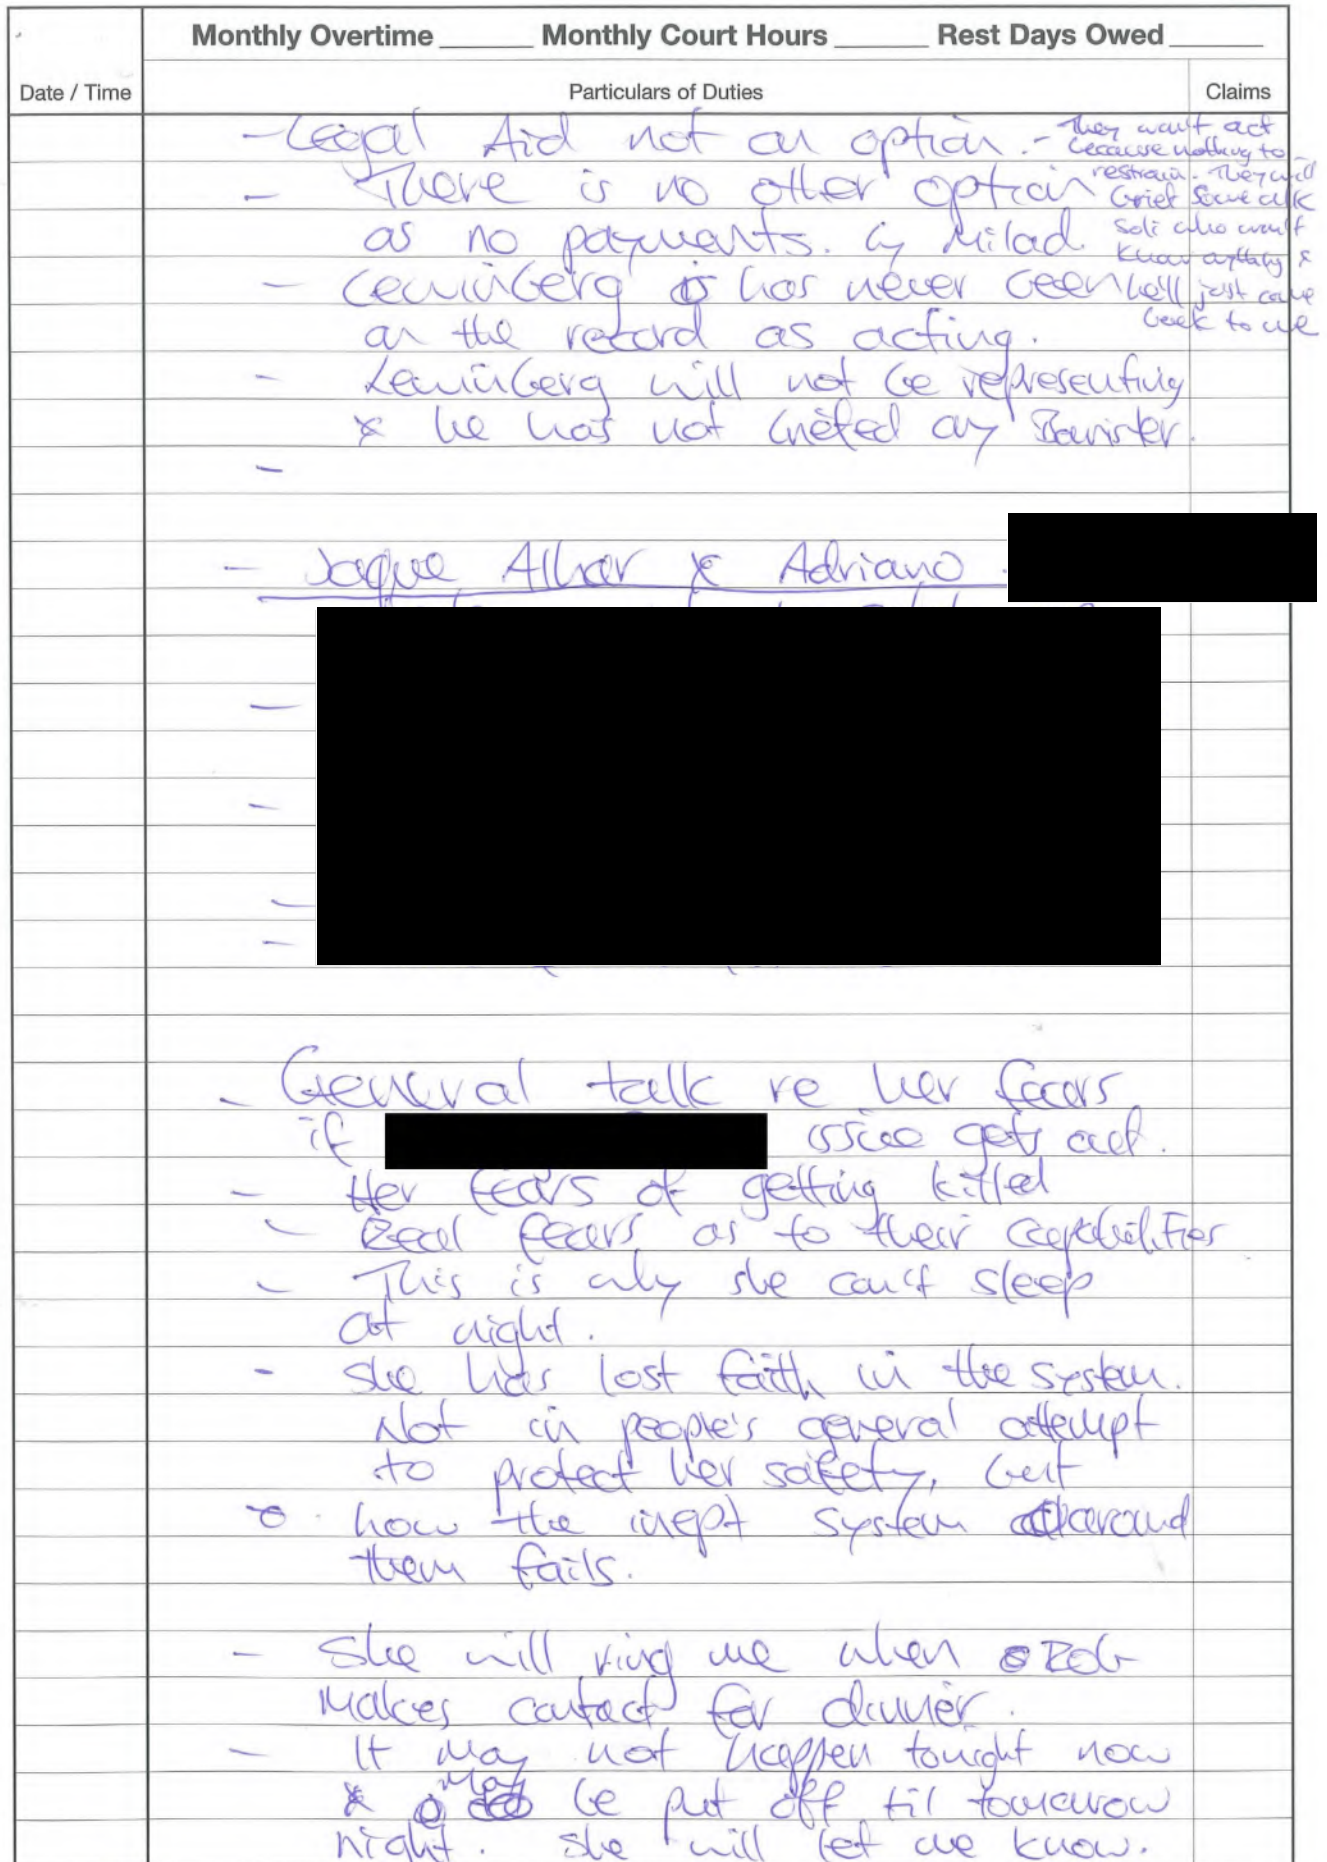 Monthly Overtime ______ Monthly Court Hours ______ Rest Days Owed ______
Date / Time
Particulars of Duties
Claims
- Legal Aid not an option. - They won't act
because nothing to
restrain. They will
brief some
soli who won't
know anything &
he'll just come
back to me
- There is no other option
as no payments. by Milad.
- Lewinberg is has never been
on the record as acting.
- Lewinberg will not be representing
& he has not briefed any Barrister.
-
- Jaque Alhar & Adriano.
-
-
-
-
- General talk re her fears
if issue gets out.
- Her fears of getting killed
- Real fears as to their capabilities
- This is why she can't sleep
at night.
- She has lost faith in the system.
Not in people's general attempt
to protect her safety, but
how the inept system around
them fails.
- She will ring me when Rob
makes contact for dinner.
- It may not happen tonight now
& may be put off til tomorrow
night. She will let me know.